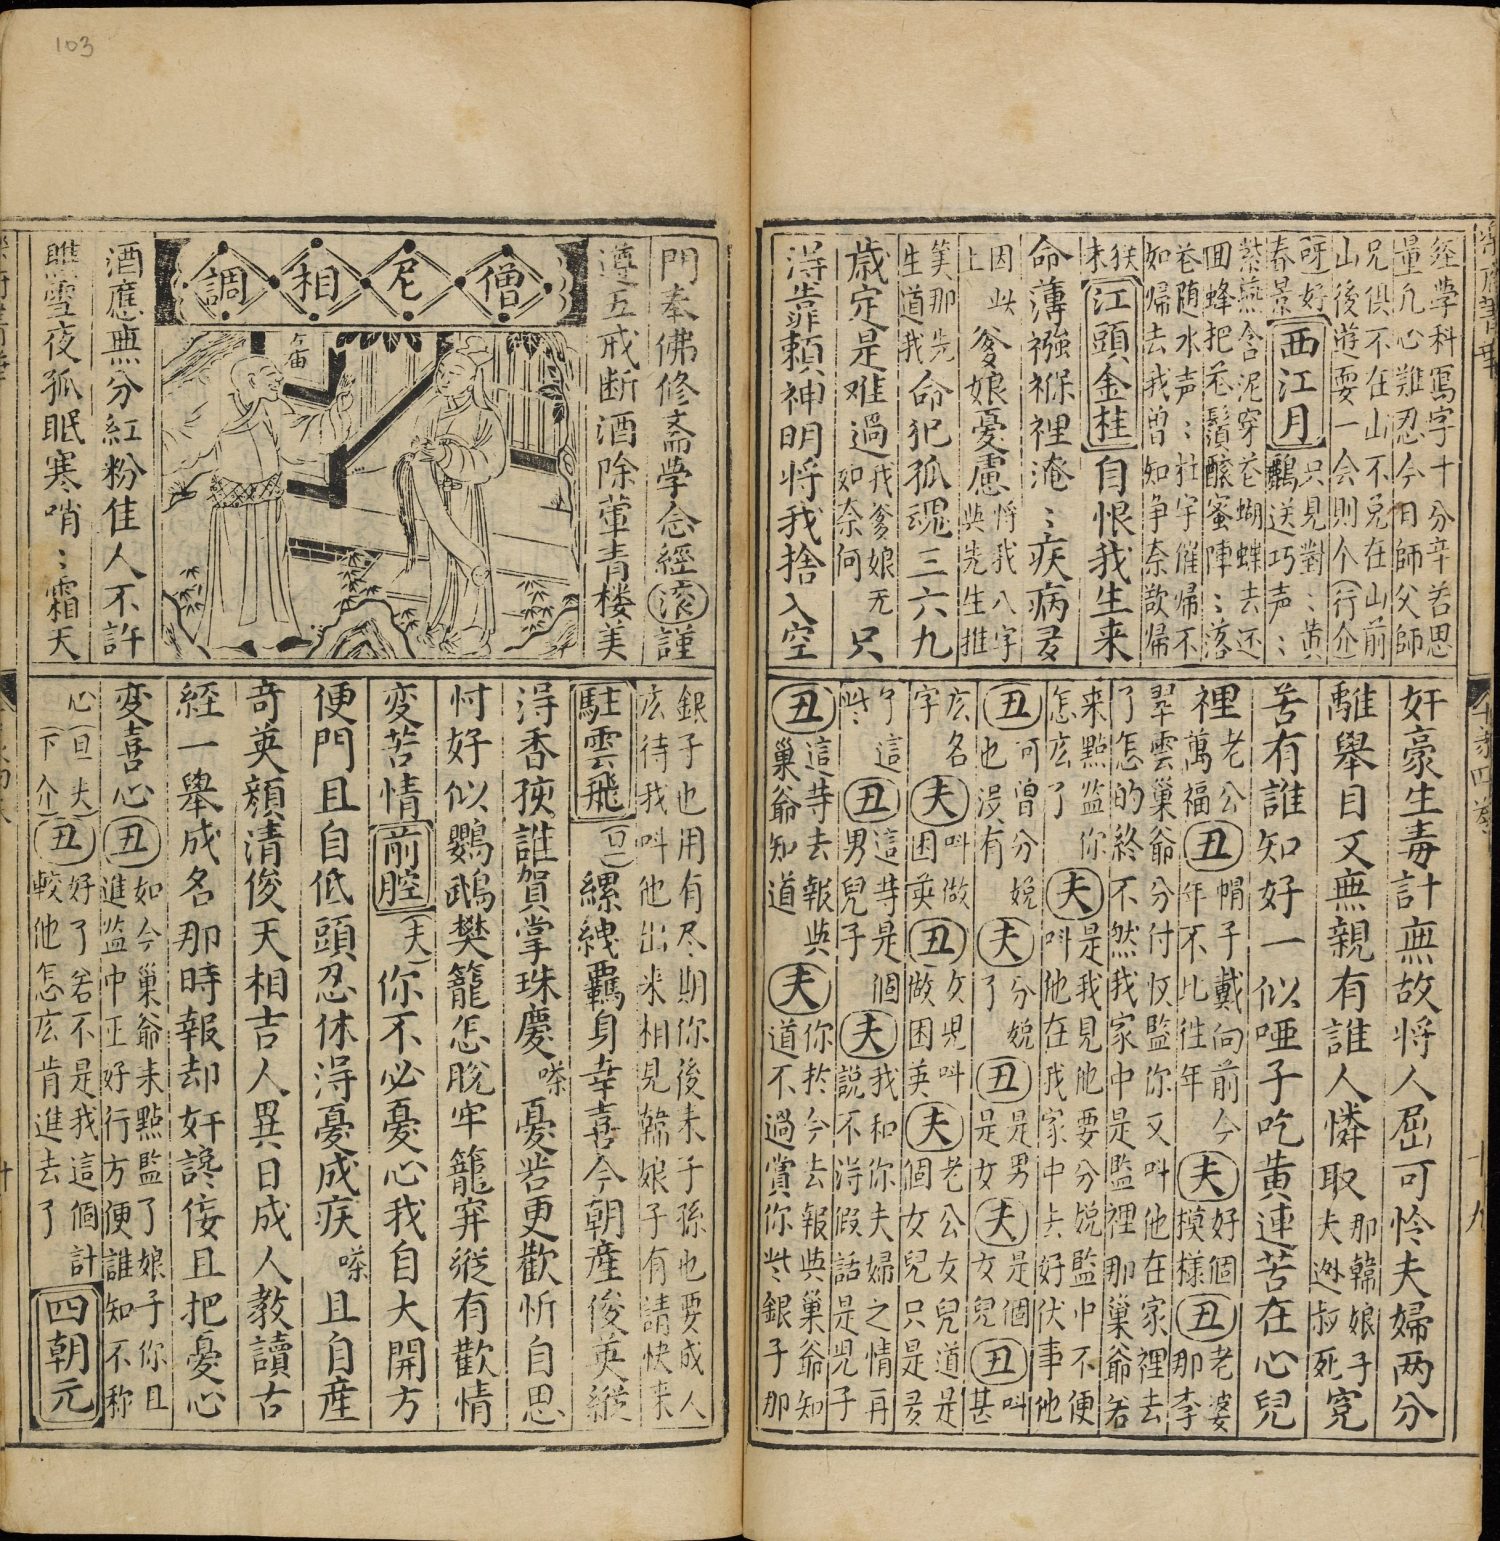 103
經學科寫字十分辛苦思
量凡心難忍今日師父師
兄俱不在山不免在山前
山後遊耍一会則个(行介
呀好
春景
西江月
只見對〻黄
鸝送巧声〻
紫燕含泥穿花蝴蝶去还
囬蜂把花鬚釀蜜陣〻落
花随水声〻杜宇催帰不
如帰去我曾知争奈歆帰
未
江頭金桂
自恨我生来
命薄襁褓裡淹〻疾病多
因此
上
爹娘憂慮
將我八字
与先生推
筭那先
生道我
命犯孤魂三六九
歳定是难過
我爹娘无
如奈何
只
淂靠頼神明将我捨入空
奸豪生毒計無故将人屈可怜夫婦两分
離舉目又無親有誰人憐取
那韓娘子
夫逊叔死
寃
苦有誰知好一似啞子吃黄連苦在心兒
裡
老公
萬福
丑
帽子戴向前今
年不比往年
夫
好個
模様
丑
老婆
那李
翠雲巢爺分付奴監你又叫他在家裡去
了怎的終不然我家中是監裡那巢爺若
来點监你
怎庅了
夫
是我見他要分娩監中不便
叫他在我家中去好伏事他
丑
可曾分娩
也没有
夫
分娩
了
丑
是男
是女
夫
是個
女兒
丑
叫
甚
庅名
字
夫
叫做
困英
丑
女児叫
做困英
夫
老公女兒道是
個女兒只是多
了這
些
丑
這等是個
男兒子
夫
我和你夫婦之情再
說不淂假話是児子
丑
這等去報与
巢爺知道
夫
你扵今去報與巢爺知
道不過賞你些銀子那
門奉佛修斋學念經
滚
謹
遵五戒断酒除葷青楼美
僧尼相調
酒應無分紅粉佳人不許
瞧雪夜孤眠寒哨〻霜天
銀子也用有尽期你後来子孫也要成人
庅待我叫他出来相見韓娘子有請快来
駐雲飛
(旦)
縲絏羈身幸喜今朝産俊英縱
淂香孩誰賀掌珠慶
嗏
憂苦更歡忻自思
忖好似鸚鵡樊籠怎脫牢籠穽縱有歡情
変苦情
前腔
(夫)
你不必憂心我自大開方
便門且自低頭忍休淂憂成疾
嗏
且自産
竒英顔清俊天相吉人異日成人教讀古
經一舉成名那時報却奸讒佞且把憂心
変喜心
丑
如今巢爺未點監了娘子你且
進监中正好行方便誰知不称
心(旦夫
下介)
丑
好了若不是我這個計
較他怎庅肯進去了
四朝元